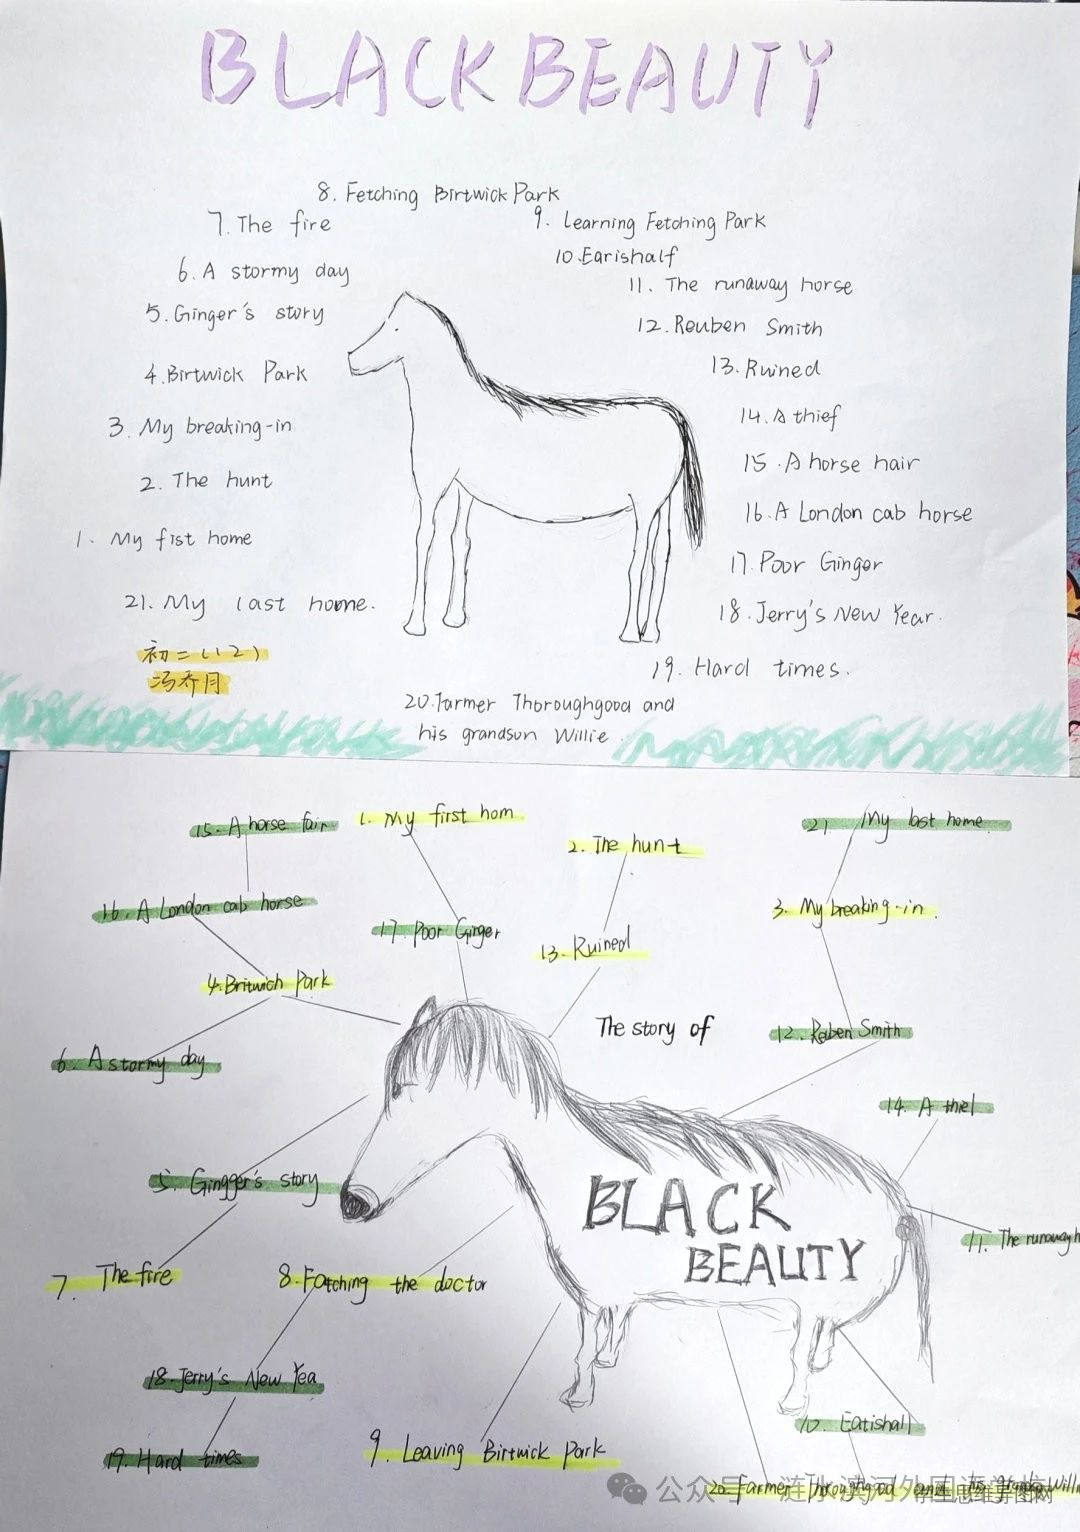 BLACK BEAUTY
8. Fetching Birtwick Park
7. The fire
9. Learning Fetching Park
10. Earishalf
6. A stormy day
11. The runaway horse
5. Ginger's story
12. Reuben Smith
4. Birtwick Park
13. Ruined
3. My breaking-in
14. A thief
2. The hunt
15. A horse hair
16. A London cab horse
1. My fist home
17. Poor Ginger
21. My last home.
18. Jerry's New Year.
初二(12)
冯乔月
19. Hard times.
20. Farmer Thoroughgood and
his grandsun Willie
15. A horse fair
1. My first hom
21 My last home
2. The hunt
16. A London cab horse
3. My breaking-in
17. Poor Ginger
13. Ruined
4. Britwich Park
The story of
12. Raben Smith
6. A stormy day
14. A thiel
5. Gingger's story
BLACK
BEAUTY
11. The runaway h
7. The fire
8. Fatching the doctor
18. Jerry's New Yea
10. Eatishall
19. Hard times
9. Leaving Birtwick Park
20. Farmer Thoroughgood Willi
公众号 涟水滨河外国语学校
思维导图网